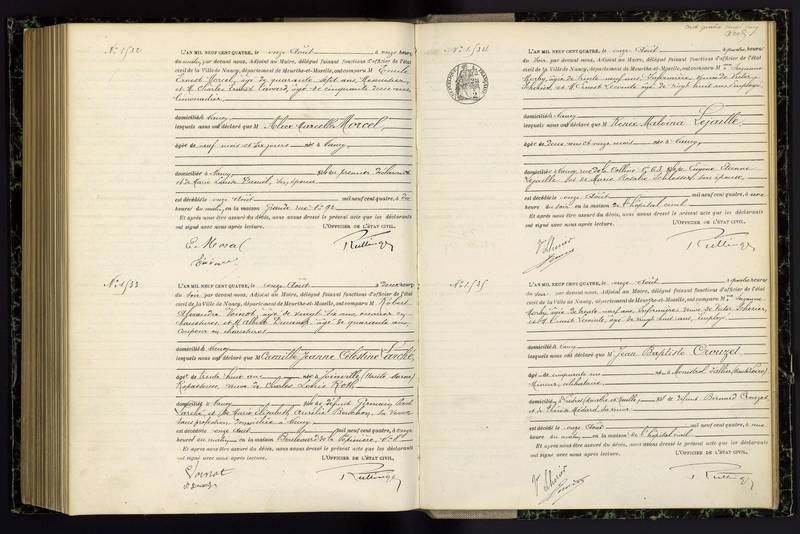 N° 1532
L'AN MIL NEUF CENT QUATRE, le onze Août à onze heures
du matin, par devant nous, Adjoint au Maire, délégué faisant fonctions d'officier de l'état
civil de la Ville de Nancy, département de Meurthe-et-Moselle, ont comparu M Emile
Ernest Morcel, âgé de quarante sept ans,
et M Charles Ernest âgé de cinquante deux ans
domiciliés à Nancy
lesquels nous ont déclaré que M Alice Marcelle Morcel,
âgée de neuf mois et dix jours née à Nancy,
domiciliée à Nancy, fille du premier déclarant
et de Marie Louise son épouse
est décédée onze Août mil neuf cent quatre, à
heures du matin, en la maison Grande rue N° 92
Et après nous être assuré du décès, nous avons dressé le présent acte que les déclarants
ont signé avec nous après lecture. L'OFFICIER DE L'ÉTAT CIVIL,
E. Morcel
N° 1533
L'AN MIL NEUF CENT QUATRE, le onze Août à deux heures
du soir, par devant nous, Adjoint au Maire, délégué faisant fonctions d'officier de l'état
civil de la Ville de Nancy, département de Meurthe-et-Moselle, ont comparu M Robert
Alexandre Voinot, âgé de vingt six ans, ouvrier en
chaussures et M Albert âgé de quarante ans
coupeur en chaussures
domiciliés à Nancy
lesquels nous ont déclaré que M Camille Jeanne Célestine Larché
âgée de trente huit ans née à Joinville (Haute Marne)
Repasseuse, veuve de Charles Louis Roth
domiciliée à Nancy, fille de défunt Germain Paul
Larché et de Marie Elizabeth Aurélie Bouchon, sa veuve
sans profession, domiciliée à Nancy
est décédée onze Août mil neuf cent quatre, à onze
heures du matin, en la maison Boulevard de la Pépinière, N°
Et après nous être assuré du décès, nous avons dressé le présent acte que les déclarants
ont signé avec nous après lecture. L'OFFICIER DE L'ÉTAT CIVIL,
Voinot
N° 1534
L'AN MIL NEUF CENT QUATRE, le onze Août à quatre heures
du soir, par devant nous, Adjoint au Maire, délégué faisant fonctions d'officier de l'état
civil de la Ville de Nancy, département de Meurthe-et-Moselle, ont comparu M Suzanne
âgée de trente neuf ans, Infirmière, veuve de Victor
et M Ernest Lecomte, âgé de vingt huit ans, employé
domiciliés à Nancy
lesquels nous ont déclaré que M Renée Malvina Lejaille
âgée de deux ans et onze mois née à Nancy,
domiciliée à Nancy, rue de la Colline N° 63, fille de Eugène Etienne
Lejaille et de Marie Rosalie son épouse,
est décédée onze Août mil neuf cent quatre, à une
heure du soir en la maison de l'hôpital civil
Et après nous être assuré du décès, nous avons dressé le présent acte que les déclarants
ont signé avec nous après lecture. L'OFFICIER DE L'ÉTAT CIVIL,
N° 1535
L'AN MIL NEUF CENT QUATRE, le onze Août à quatre heures
du soir, par devant nous, Adjoint au Maire, délégué faisant fonctions d'officier de l'état
civil de la Ville de Nancy, département de Meurthe-et-Moselle, ont comparu M Suzanne
âgée de trente neuf ans, Infirmière, veuve de Victor
et M Ernest Lecomte, âgé de vingt huit ans, employé
domiciliés à Nancy
lesquels nous ont déclaré que M Jean Baptiste Crouzet
âgé de cinquante ans né à Monistrol d'Allier (Haute Loire)
Mineur, célibataire
domicilié (Meurthe et Moselle) fils de défunt Bernard Crouzet
et de Médard, sa veuve
est décédé onze Août mil neuf cent quatre, à une
heure du matin en la maison de l'hôpital civil
Et après nous être assuré du décès, nous avons dressé le présent acte que les déclarants
ont signé avec nous après lecture. L'OFFICIER DE L'ÉTAT CIVIL,